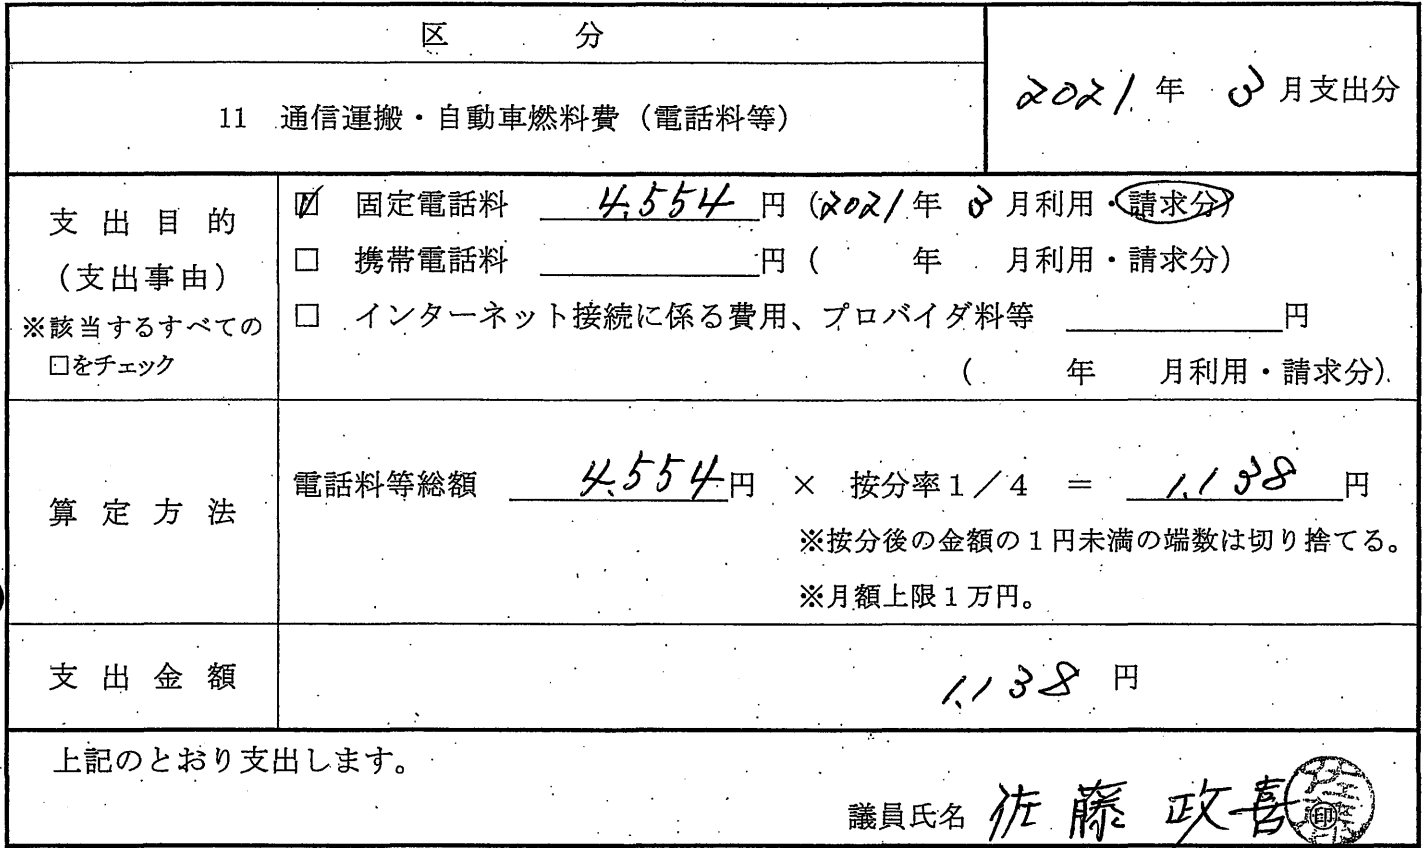 区 分
11 通信運搬・自動車燃料費（電話料等）
2021年 3月支出分
支出目的
（支出事由）
※該当するすべての
□をチェック
☑ 固定電話料 4.554円（2021年 3月利用・請求分）
□ 携帯電話料 円（ 年 月利用・請求分）
□ インターネット接続に係る費用、プロバイダ料等 円
（ 年 月利用・請求分）
算定方法
電話料等総額 4.554円 × 按分率１／４ ＝ 1.138円
※按分後の金額の１円未満の端数は切り捨てる。
※月額上限１万円。
支出金額
1.138円
上記のとおり支出します。
議員氏名 佐藤 政喜 ㊞